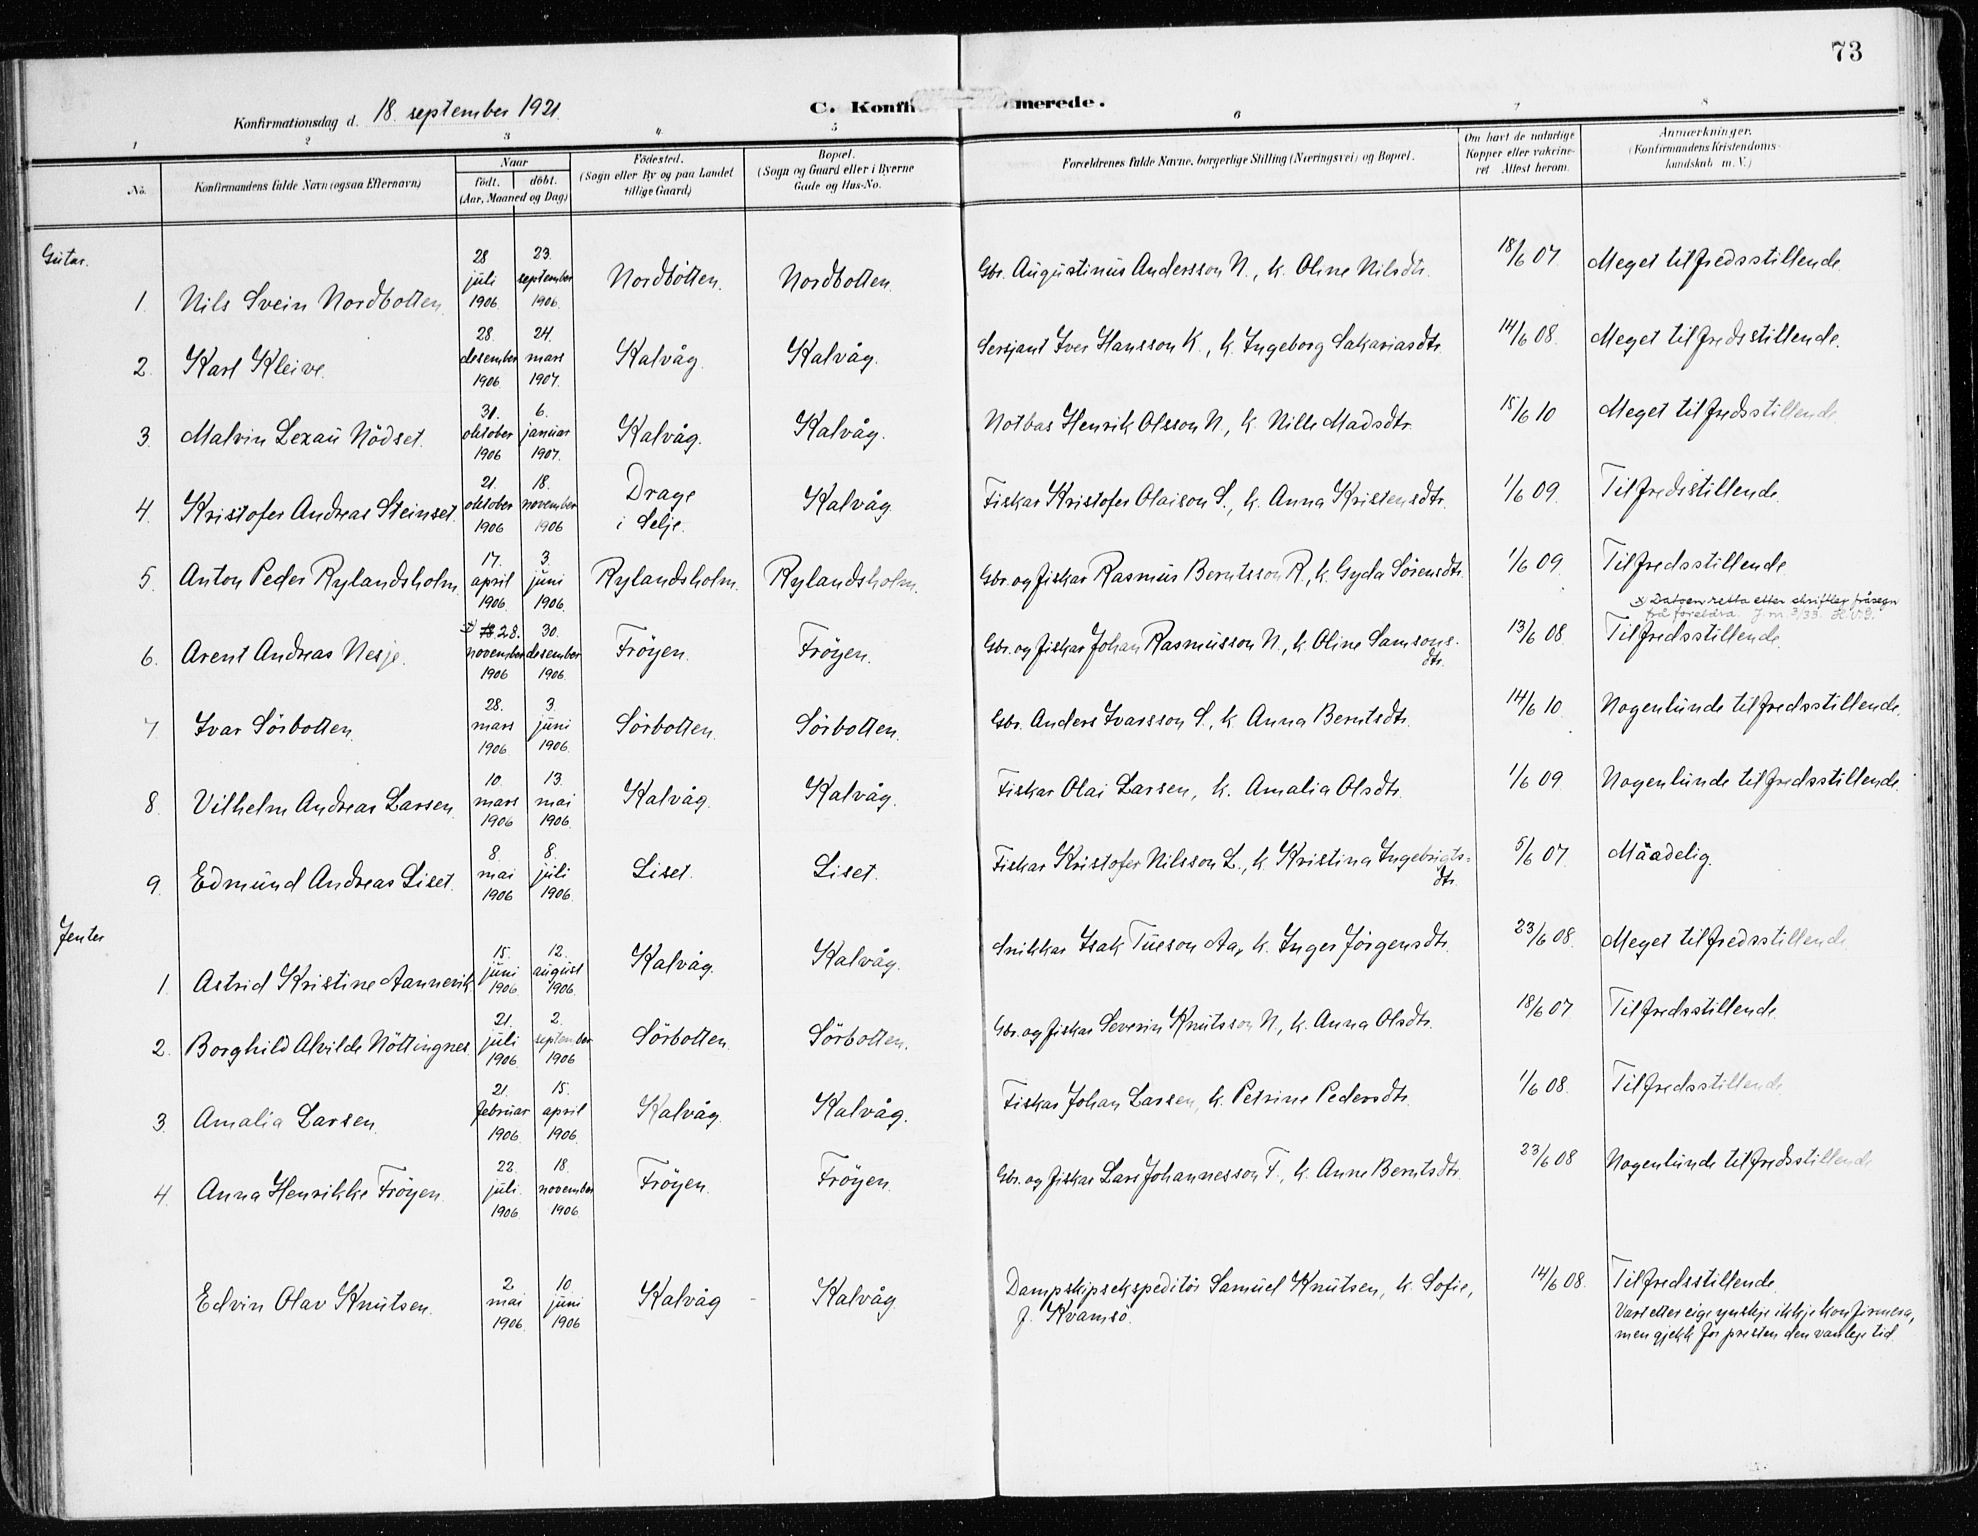 73
Konfirmationsdag d. 18. september 1921.
C. Konfi merede.
1 2 3 4 5 6 7 8
No. Konfirmandens fulde Navn (ogsaa Efternavn) Naar født. døbt. (Aar, Maaned og Dag) Fødested. (Sogn eller By og paa Landet tillige Gaard) Bopæl. (Sogn og Gaard eller i Byerne Gade og Hus-No. Forældrenes fulde Navne, borgerlige Stilling (Næringsvei) og Bopæl. Om havt de naturlige Kopper eller vakcineret Attest herom. Anmærkninger. (Konfirmandens Kristendomskundskab m. V.)
Gutar.
1. Nils Svein Nordbotten. 28 juli 1906. 23. september 1906. Nordbotten. Nordbotten. Gbr. Augustinus Andersson N., k. Oline Nilsdtr. 18/6 07 Meget tilfredsstillende.
2. Karl Kleive. 28. desember 1906. 24. mars 1907. Kalvåg. Kalvåg. Sersjant Iver Hansson K., k. Ingeborg Sakariasdtr. 14/6 08. Meget tilfredsstillende.
3. Malvin Lexau Nödset. 31. oktober 1906 6. januar 1907. Kalvåg. Kalvåg. Notbas Henrik Olsson N., k. Nille Madsdtr. 15/6 10 Meget tilfredsstillende.
4. Kristofer Andreas Steinset. 21. oktober 1906 18. november 1906 Drage i Selje. Kalvåg Fiskar Kristofer Olaison S., k. Anna Kristensdtr. 1/6 09. Tilfredsstillende.
5. Anton Peder Rylandsholm. 17. april 1906. 3. juni 1906. Rylandsholm. Rylandsholm. Gbr. og fiskar Rasmus Berntsson R., k. Gyda Sörensdtr. 1/6 09 Tilfredsstillende.
x Datoen retta etter skriftleg fråsegn
frå foreldra J nr. 3/33. H.V.S.
6. Arent Andreas Nesje. x) 28. november 1906 30. desember 1906. Fröyen. Fröyen. Gbr. og fiskar Johan Rasmusson N., k. Oline Samsonsdtr. 13/6 08 Tilfredsstillende.
7. Ivar Sörbotten. 28. mars 1906 3. juni 1906. Sörbotten. Sörbotten. Gbr. Anders Ivarsson S., k. Anna Berntsdtr. 14/6 10 Nogenlunde tilfredsstillende.
8. Vilhelm Andreas Larsen. 10. mars 1906 13. mai 1906. Kalvåg. Kalvåg. Fiskar Olai Larsen, k. Amalia Olsdtr. 1/6 09 Nogenlunde tilfredsstillende.
9. Edmund Andreas Liset. 8. mai 1906 8. juli 1906. Liset. Liset. Fiskar Kristofer Nilsson L., k. Kristina Ingebrigtsdtr. 5/6 07. Måadelig.
Jenter
1. Astrid Kristine Aannevik 15. juni 1906. 12. august 1906. Kalvåg. Kalvåg. Snikkar Isak Tueson Aa, k. Inger Jörgensdtr. 23/6 08. Meget tilfredsstillende
2. Borghild Alvilde Nöttingnes. 21. juli 1906 2. september 1906 Sörbotten. Sörbotten. Gbr. og fiskar Severin Knutsson N., k. Anna Olsdtr. 18/6 07 Tilfredsstillende
3. Amalia Larsen. 21. februar 1906. 15. april 1906. Kalvåg. Kalvåg. Fiskar Johan Larsen, k. Petrine Pedersdtr. 1/6 08. Tilfredsstillende
4. Anna Henrikke Fröyen. 22. juli 1906 18. november 1906. Fröyen. Fröyen. Gbr. og fiskar Lars Johannesson F., k. Anne Berntsdtr. 23/6 08 Nogenlunde tilfredsstillende
Edvin Olav Knutsen. 2 mai 1906. 10. juni 1906 Kalvåg Kalvåg Dampskipsekspeditör Samuel Knutsen, k. Sofie, f. Kvamsö. 14/6 08. Tilfredsstillende
Vart etter eige ynskje ikkje konfirmera,
men gjekk for presten den vanlege tid.